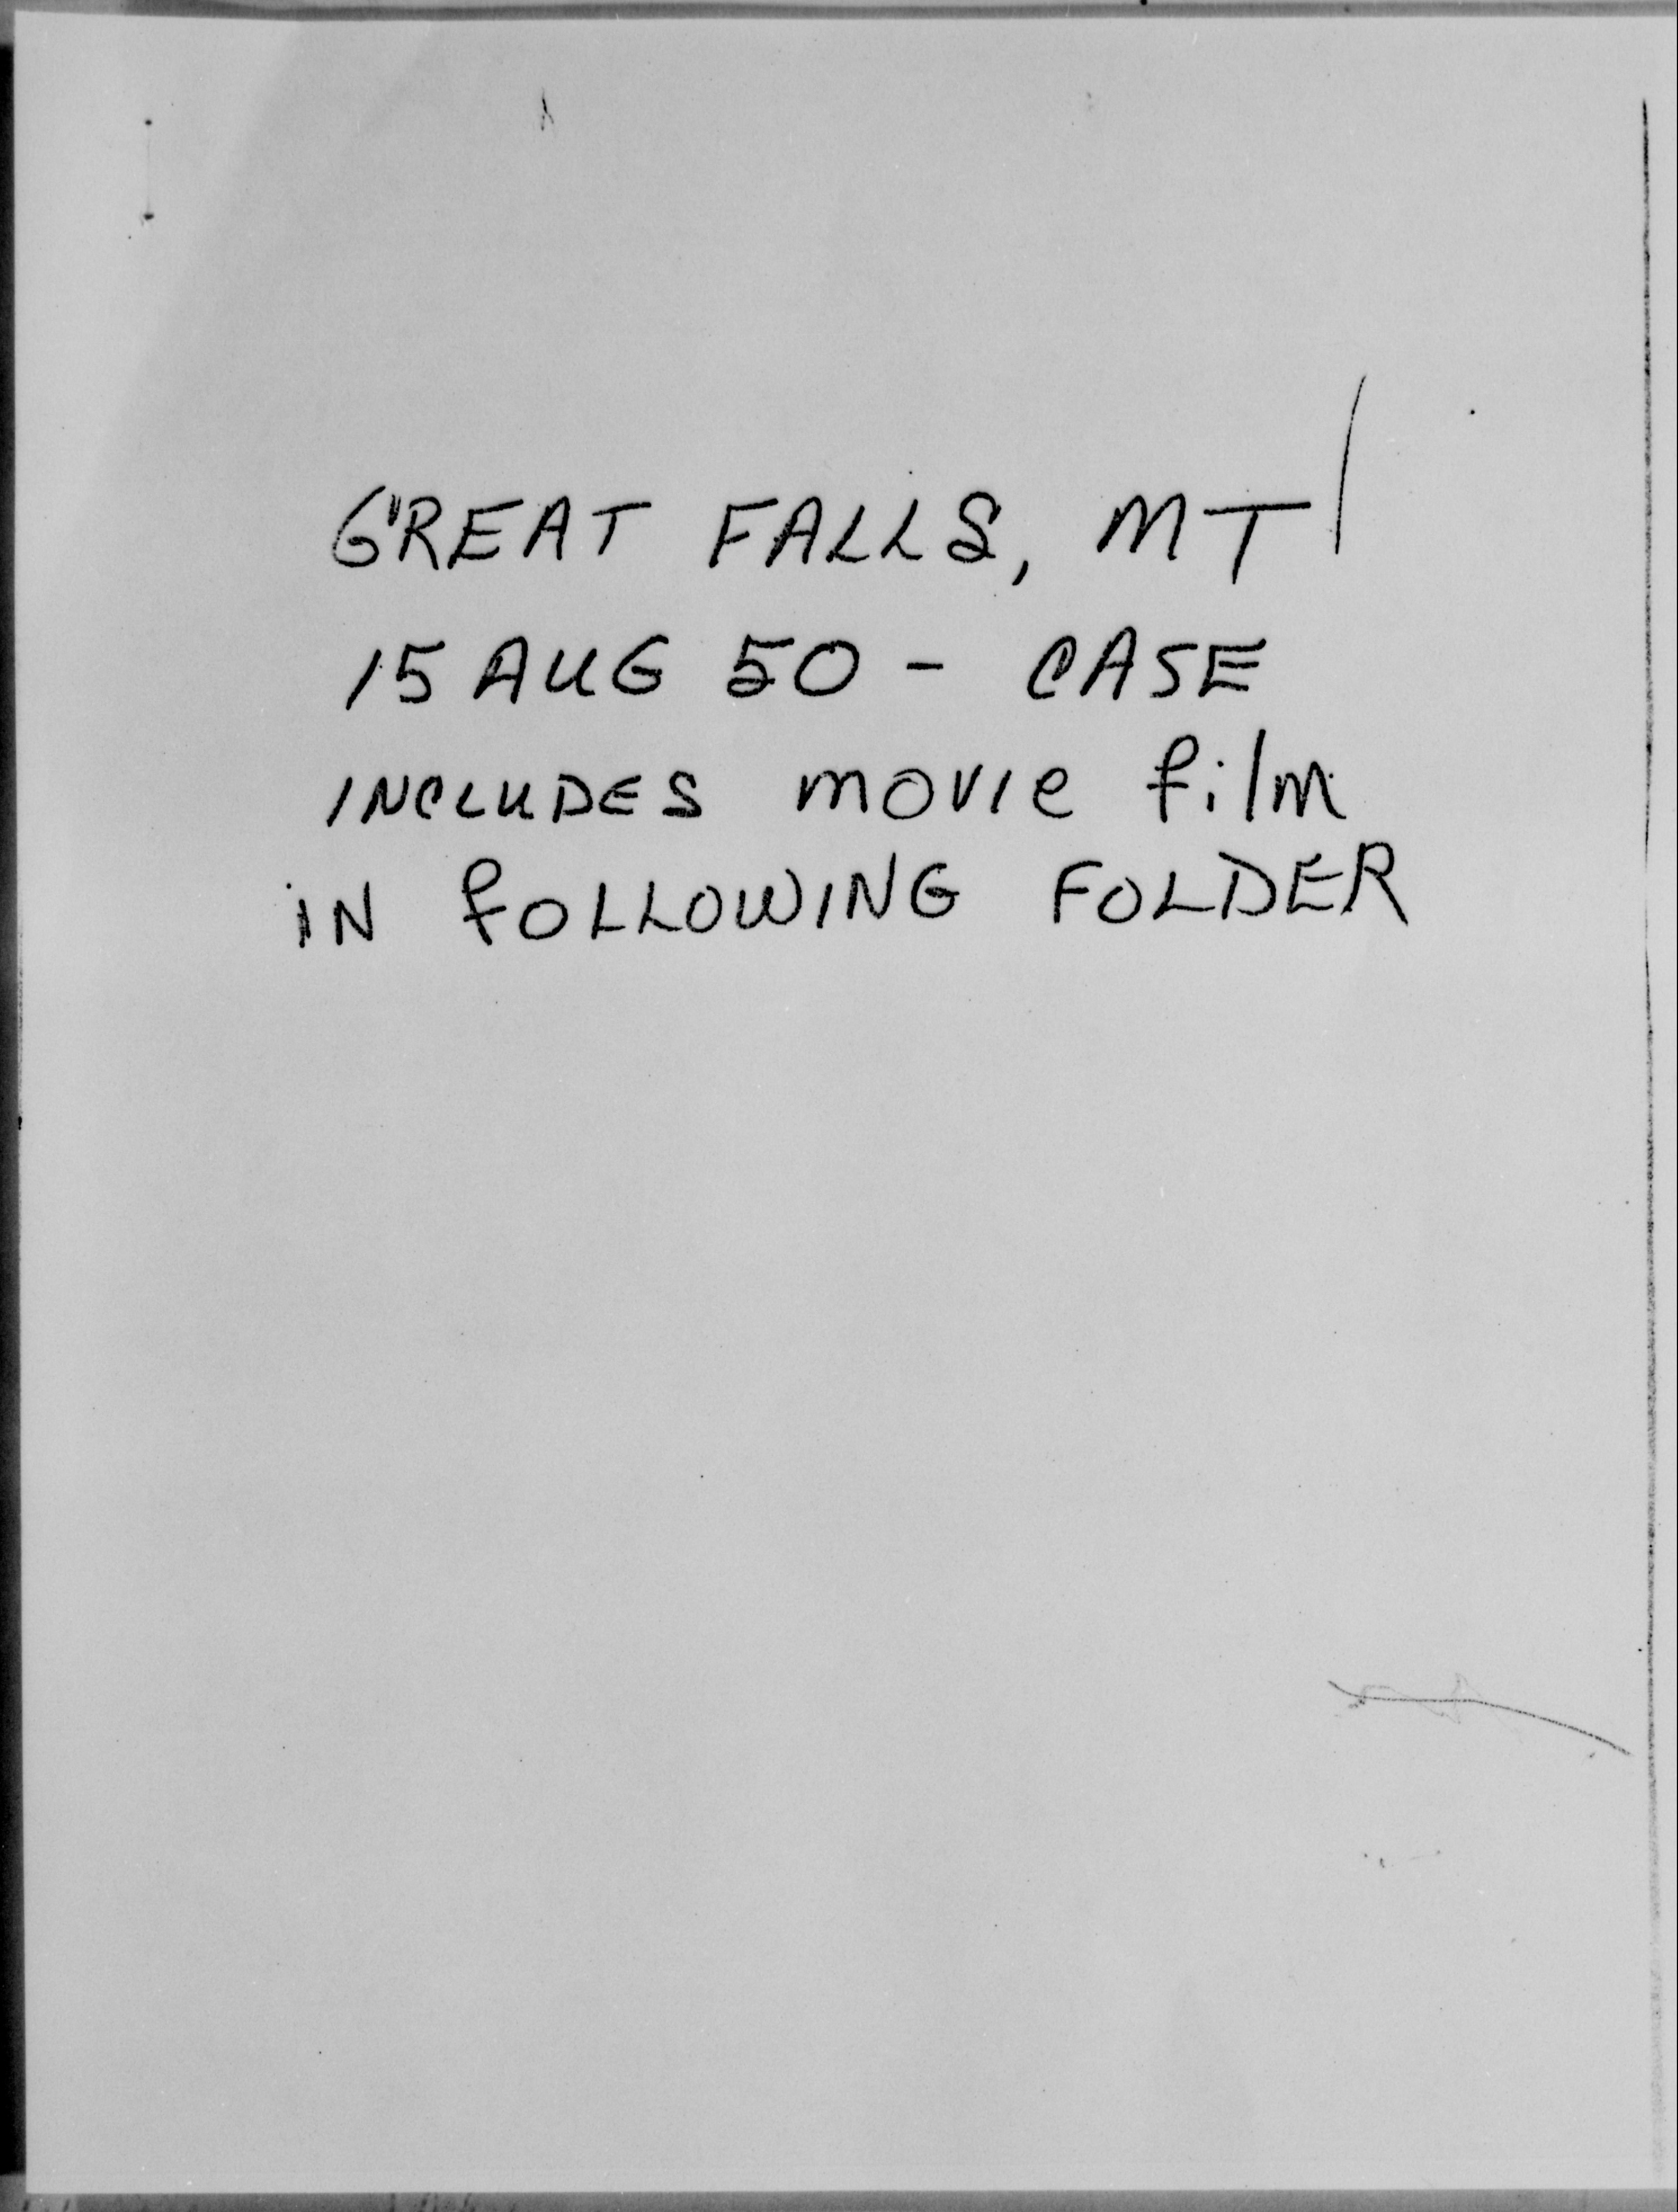 GREAT FALLS, MT
15 AUG 50 - CASE
INCLUDES movie film
iN fOLLOWING FOLDER